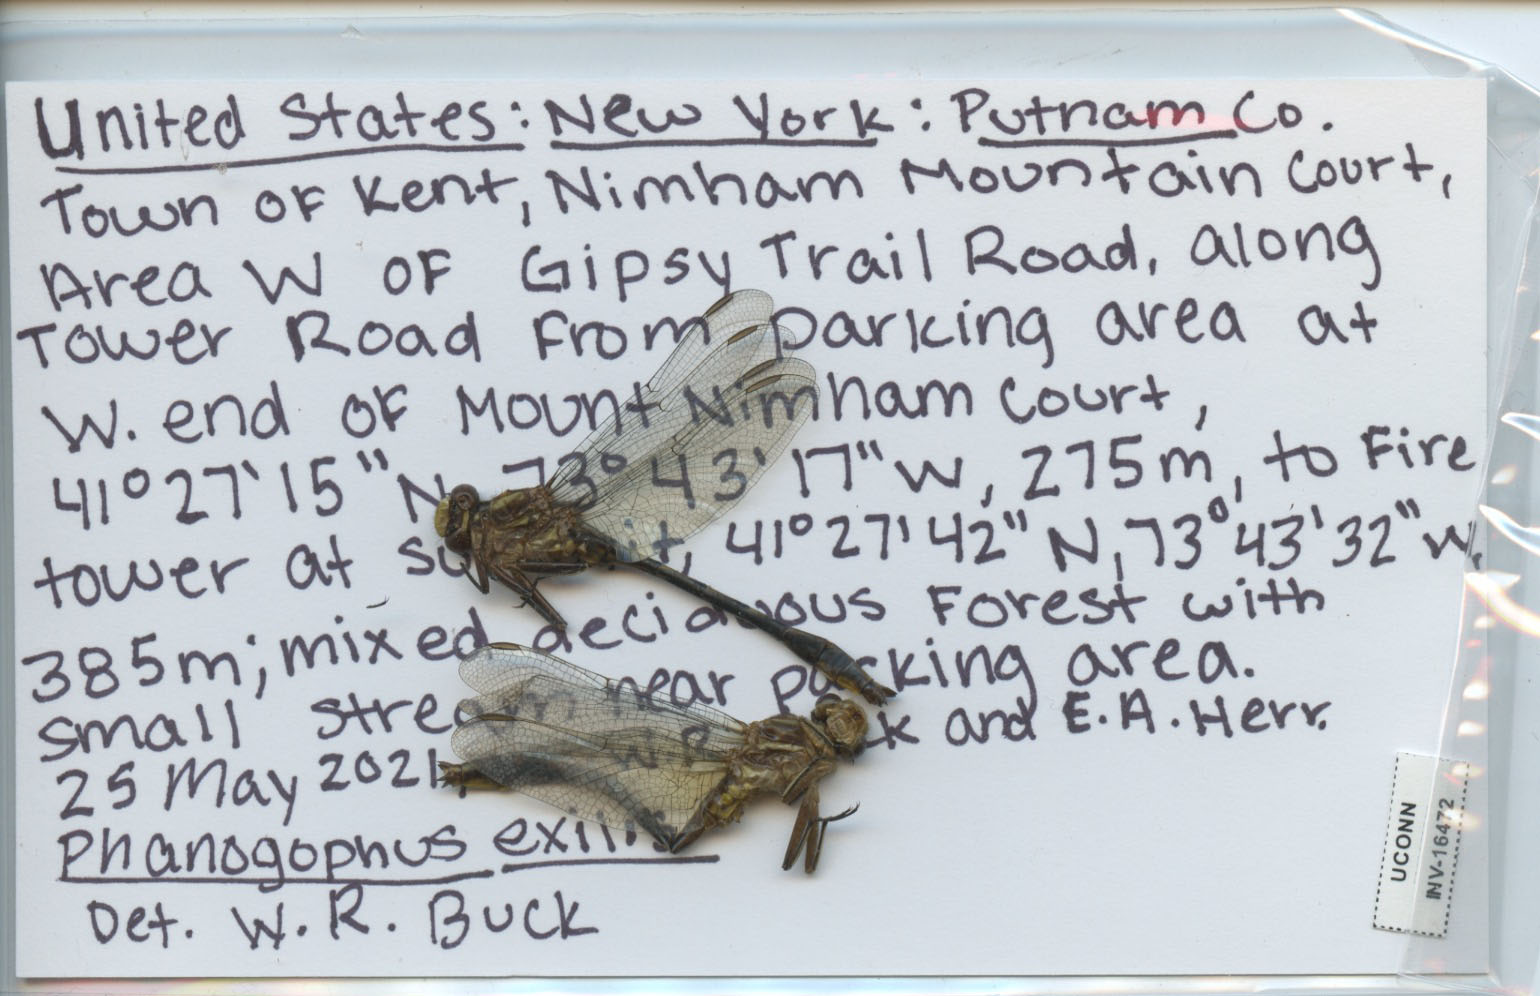 United States: New York: Putnam Co.
Town of Kent, Nimham Mountain Court,
Area W of Gipsy Trail Road, along
Tower Road from parking area at
W. end of Mount Nimham Court,
41°27'15"N, 73°43'17"W, 275m, to Fire
tower at summit, 41°27'42"N, 73°43'32"W,
385m; mixed deciduous Forest with
small stream near parking area.
25 May 2021, W.R. Buck and E.A. Herr.
Phanogophus exilis
Det. W. R. Buck
UCONN
INV-16472